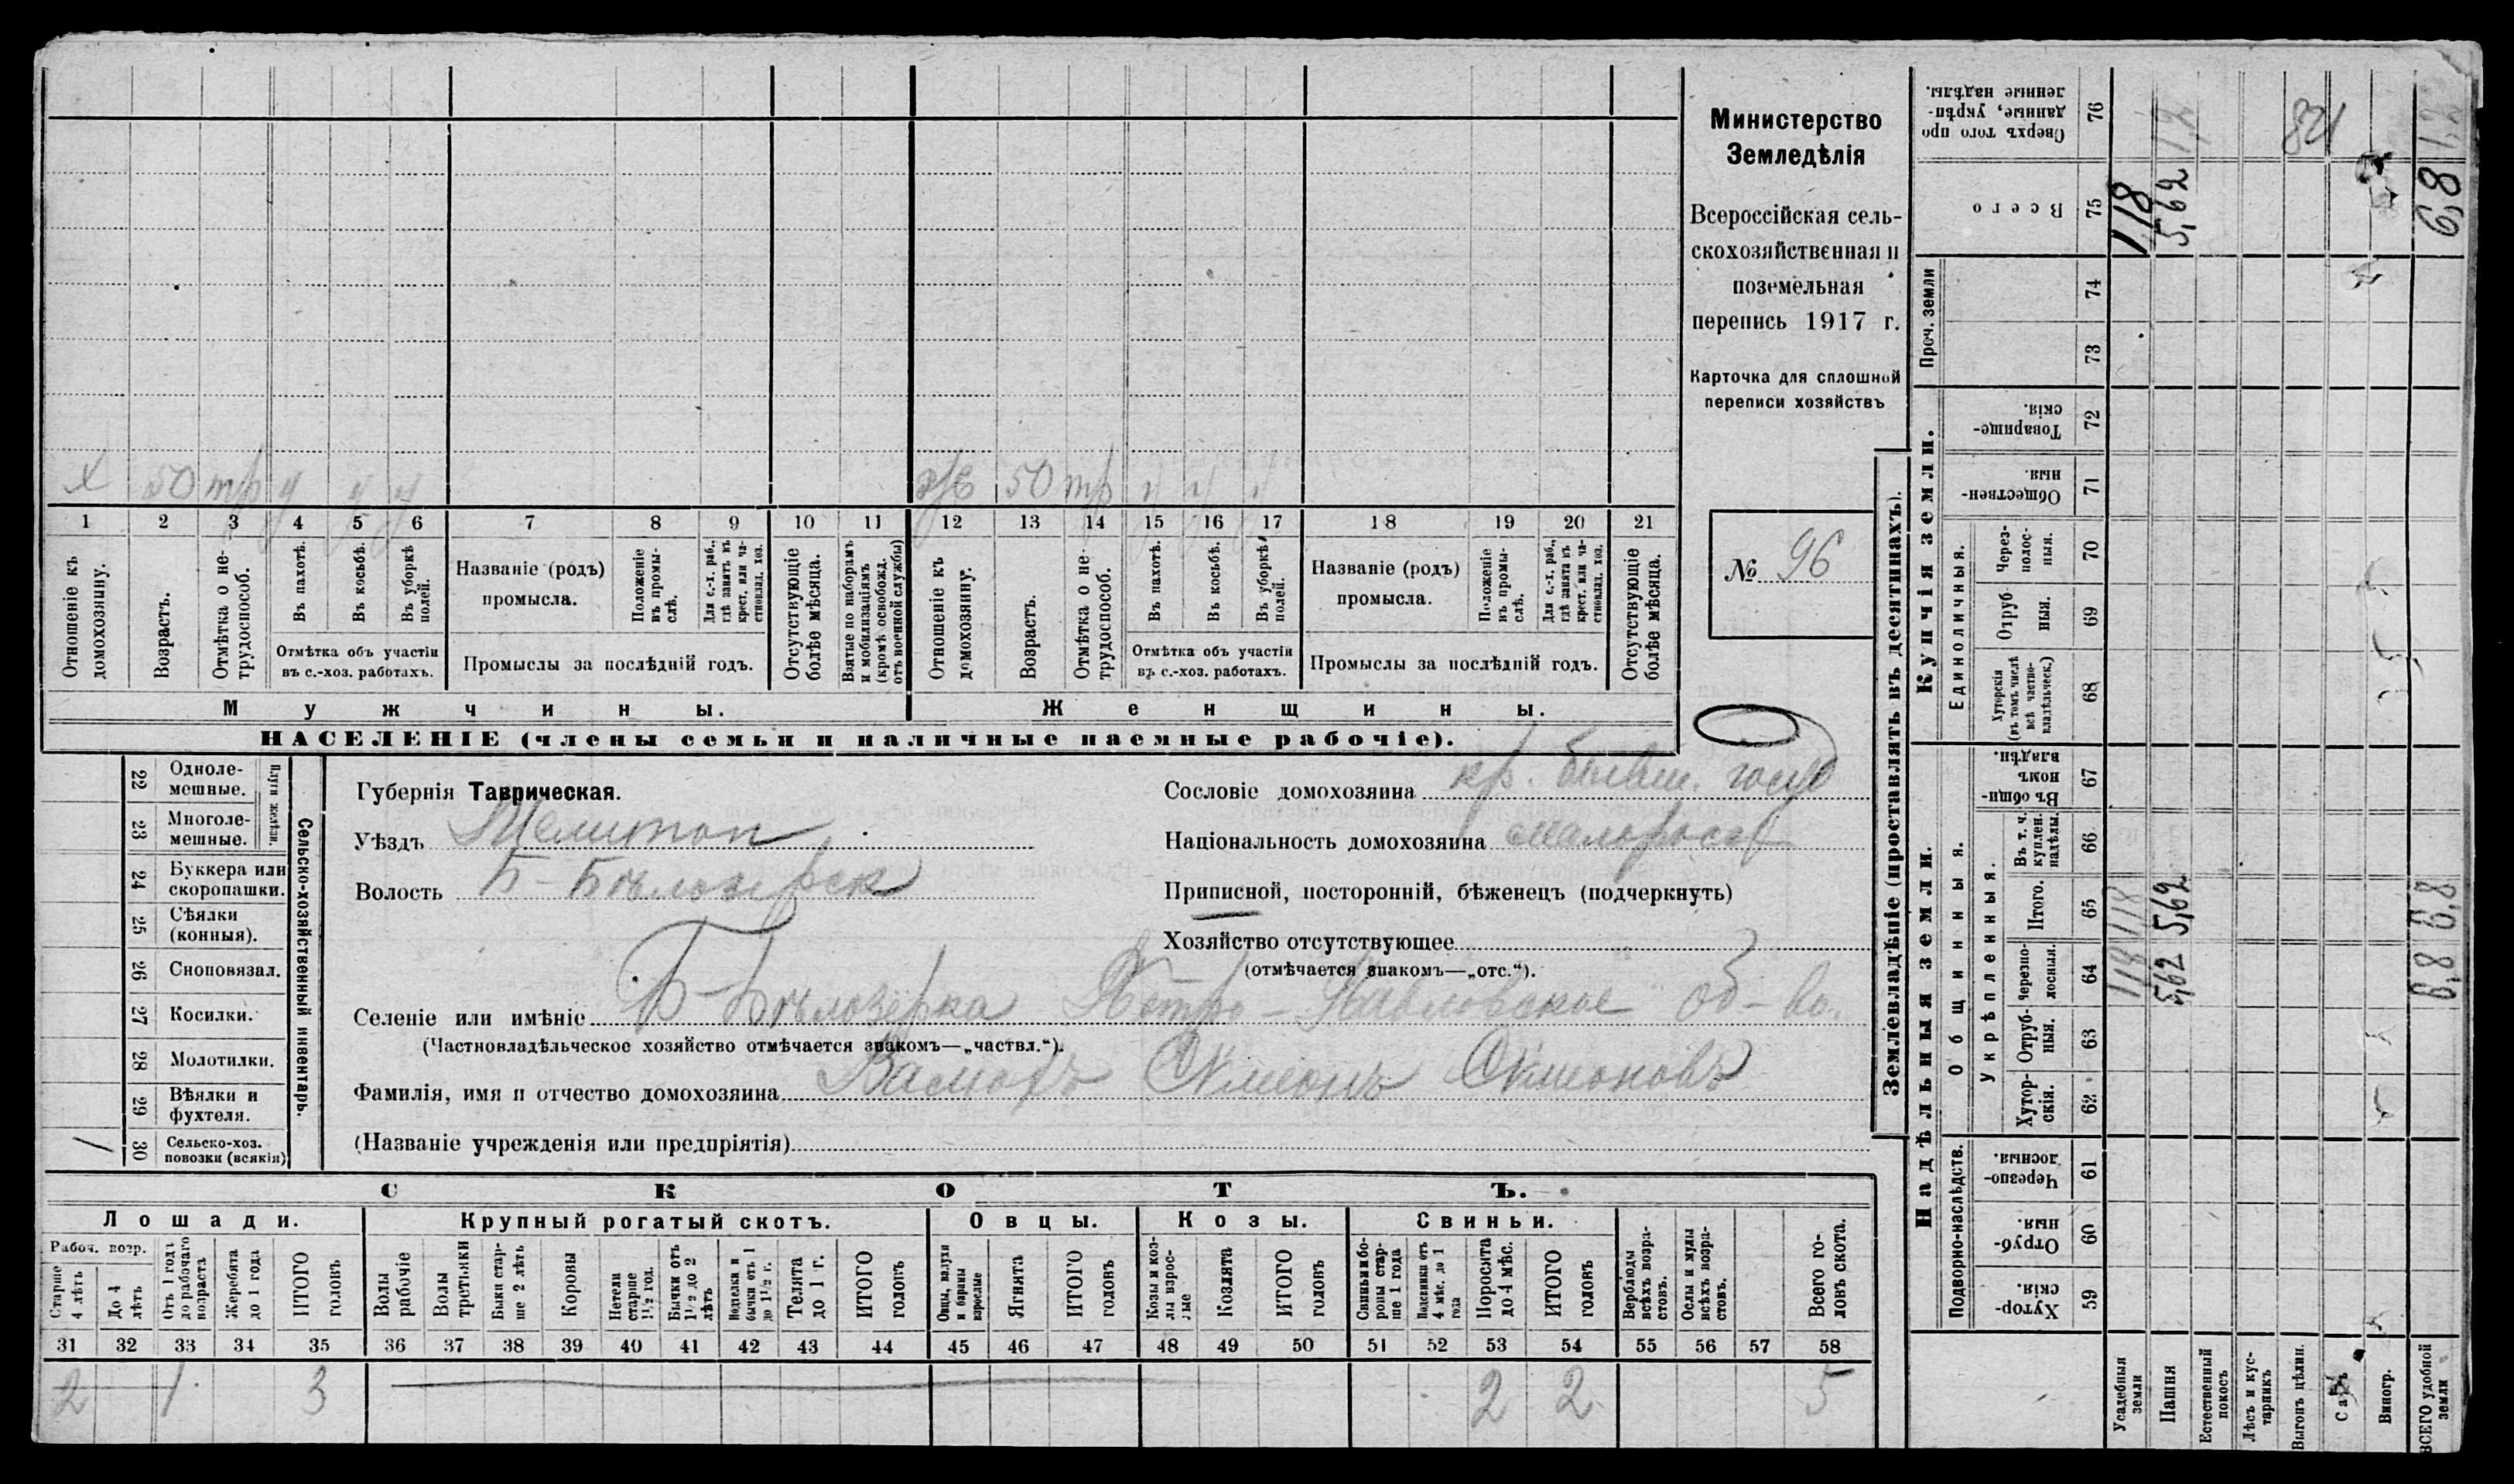 Министерство
Земледѣлія
Всероссійская сель-
скохозяйственная и
поземельная
перепись 1917 г.
Карточка для сплошной
переписи хозяйствъ
№ 96
х 50 тр
ж 50 тр
1 2 3 4 5 6 7 8 9 10 11 12 13 14 15 16 17 18 19 20 21
Отношеніе къ домохозяину.
Возрастъ.
Отмѣтка о не-трудоспособ.
Въ пахотѣ.
Въ косьбѣ.
Въ уборкѣ полей.
Отмѣтка объ участіи
въ с.-хоз. работахъ.
Названіе (родъ)
промысла.
Положеніе въ промы-слѣ.
Для с.-х. раб., гдѣ занятъ въ крест. или ча-стновлад. хоз.
Промыслы за послѣдній годъ.
Отсутствующіе болѣе мѣсяца.
Взятые по наборамъ и мобилизаціямъ (кромѣ освобожд. отъ военной службы)
Отношеніе къ домохозяину.
Возрастъ.
Отмѣтка о не-трудоспособ.
Въ пахотѣ.
Въ косьбѣ.
Въ уборкѣ полей.
Отмѣтка объ участіи
въ с.-хоз. работахъ.
Названіе (родъ)
промысла.
Положеніе въ промы-слѣ.
Для с.-х. раб., гдѣ занята въ крест. или ча-стновлад. хоз.
Промыслы за послѣдній годъ.
Отсутствующіе болѣе мѣсяца.
Мужчины.
Женщины.
НАСЕЛЕНІЕ (члены семьи и наличные наемные рабочіе).
22 Одноле-мешные.
23 Многоле-мешные.
Плуги желѣзн.
24 Буккера или скоропашки.
25 Сѣялки (конныя).
26 Сноповязал.
27 Косилки.
28 Молотилки.
29 Вѣялки и фухтеля.
30 Сельско-хоз. повозки (всякія) 1
Сельско-хозяйственный инвентарь.
Губернія Таврическая.
Уѣздъ Мелитоп
Волость Б-Бѣлозерск
Сословіе домохозяина кр. бывш. госуд
Національность домохозяина малоросс
Приписной, посторонній, бѣженецъ (подчеркнуть)
Хозяйство отсутствующее
(отмѣчается знакомъ—„отс.“).
Селеніе или имѣніе Б-Бѣлозерка Петро-Павловское об-во.
(Частновладѣльческое хозяйство отмѣчается знакомъ—„частвл.“).
Фамилія, имя и отчество домохозяина Симеонъ Симоновъ
(Названіе учрежденія или предпріятія)
СКОТЪ.
Лошади.
Крупный рогатый скотъ.
Овцы.
Козы.
Свиньи.
Рабоч. возр.
Старше 4 лѣтъ
До 4 лѣтъ
Отъ 1 года до рабочаго возраста
Жеребята до 1 года
ИТОГО головъ
Волы рабочіе
Волы третьяки
Быки стар-ше 2 лѣтъ
Коровы
Нетели старше 1½ год.
Бычки отъ 1½ до 2 лѣтъ
Подтелки и бычки отъ 1 до 1½ г.
Телята до 1 г.
ИТОГО головъ
Овцы, валухи и бараны взрослые
Ягнята
ИТОГО головъ
Козы и коз-лы взрос-лые
Козлята
ИТОГО головъ
Свиньи и бо-ровы стар-ше 1 года
Подсвинки отъ 4 мѣс. до 1 года
Поросята до 4 мѣс.
ИТОГО головъ
Верблюды всѣхъ возра-стовъ.
Ослы и мулы всѣхъ возра-стовъ.
Всего го-ловъ скота.
31 32 33 34 35 36 37 38 39 40 41 42 43 44 45 46 47 48 49 50 51 52 53 54 55 56 57 58
2 1 3 2 2 5
Землевладѣніе (проставлять въ десятинахъ).
Купчія земли.
Надѣльныя земли.
Сверхъ того про-данные, укрѣп-ленные надѣлы. 76
Всего 75
Проч. земли
74
73
Товарище-скія. 72
Обществен-ныя. 71
Единоличныя.
Через-полос-ныя. 70
Отруб-ныя. 69
Хуторскія (въ томъ числѣ всѣ частно-владѣльческ.) 68
Общинныя.
Въ общин-номъ владѣн. 67
Укрѣпленныя.
Въ т. ч. куплен. надѣлы. 66
Итого. 65
Черезпо-лосныя. 64
Отруб-ныя. 63
Хутор-скія. 62
Подворно-наслѣдств.
Черезпо-лосныя. 61
Отруб-ныя. 60
Хутор-скія. 59
Усадебныя земли 118 118 118
Пашня 5,62 5,62 5,62 1,2
Естественный покосъ
Лѣсъ и кус-тарникъ
Выгонъ цѣлин. 84
Садъ
Виногр.
ВСЕГО удобной земли 6,8 6,8 6,8 1,2